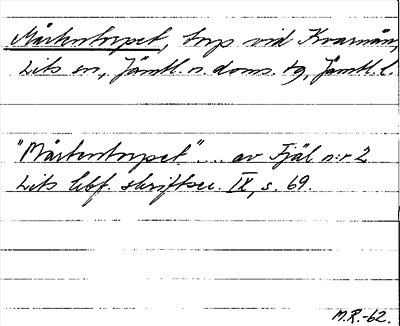 Mårtentorpet, torp vid Kvarnån,
Lits sn, Jämtl. n. doms. tg, Jämtl. l.
"Mårtentorpet" ... av Fjäl n:r 2
Lits hbf. skriftser. IX, s. 69.
M.R.-62.